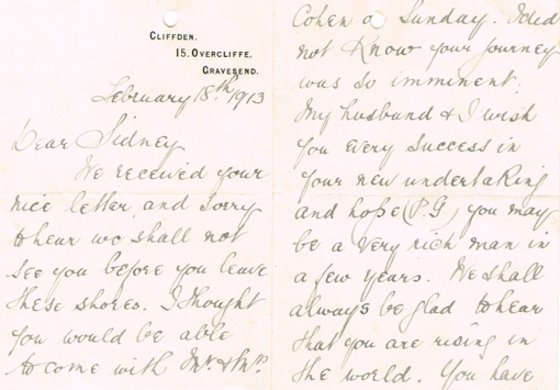 CLIFFDEN,
15, OVERCLIFFE,
GRAVESEND.
February 18th 1913
Dear Sidney
We received your
nice letter and sorry
to hear we shall not
see you before you leave
these shores. I thought
you would be able
to come with Mr. & Mrs.
Cohen on Sunday. I did
not know your journey
was so imminent.
My husband & I wish
you every success in
your new undertaking
and hope (P.G) you may
be a very rich man in
a few years. We shall
always be glad to hear
that you are rising in
the world. You have